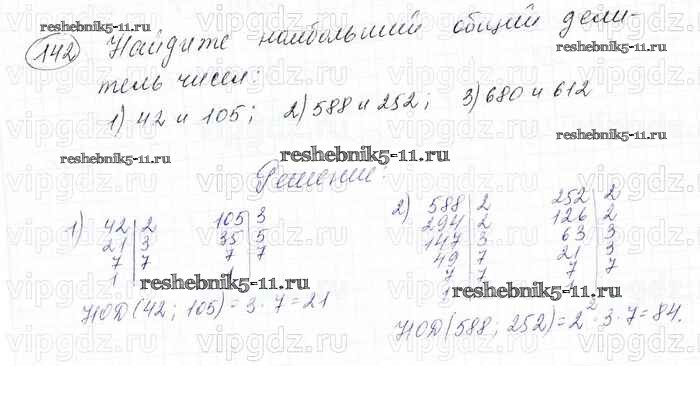 142 Найдите наибольший общий дели-
тель чисел:
1) 42 и 105; 2) 588 и 252; 3) 680 и 612
Решение:
1) 42 | 2 105 | 3
21 | 3 35 | 5
7 | 7 7 | 7
1
НОД (42; 105) = 3 · 7 = 21
2) 588 | 2 252 | 2
294 | 2 126 | 2
147 | 3 63 | 3
49 | 7 21 | 3
7 | 7 7 | 7
1
НОД (588; 252) = 2² · 3 · 7 = 84.
reshebnik5-11.ru
reshebnik5-11.ru
reshebnik5-11.ru
reshebnik5-11.ru
reshebnik5-11.ru
reshebnik5-11.ru
reshebnik5-11.ru
vipgdz.ru